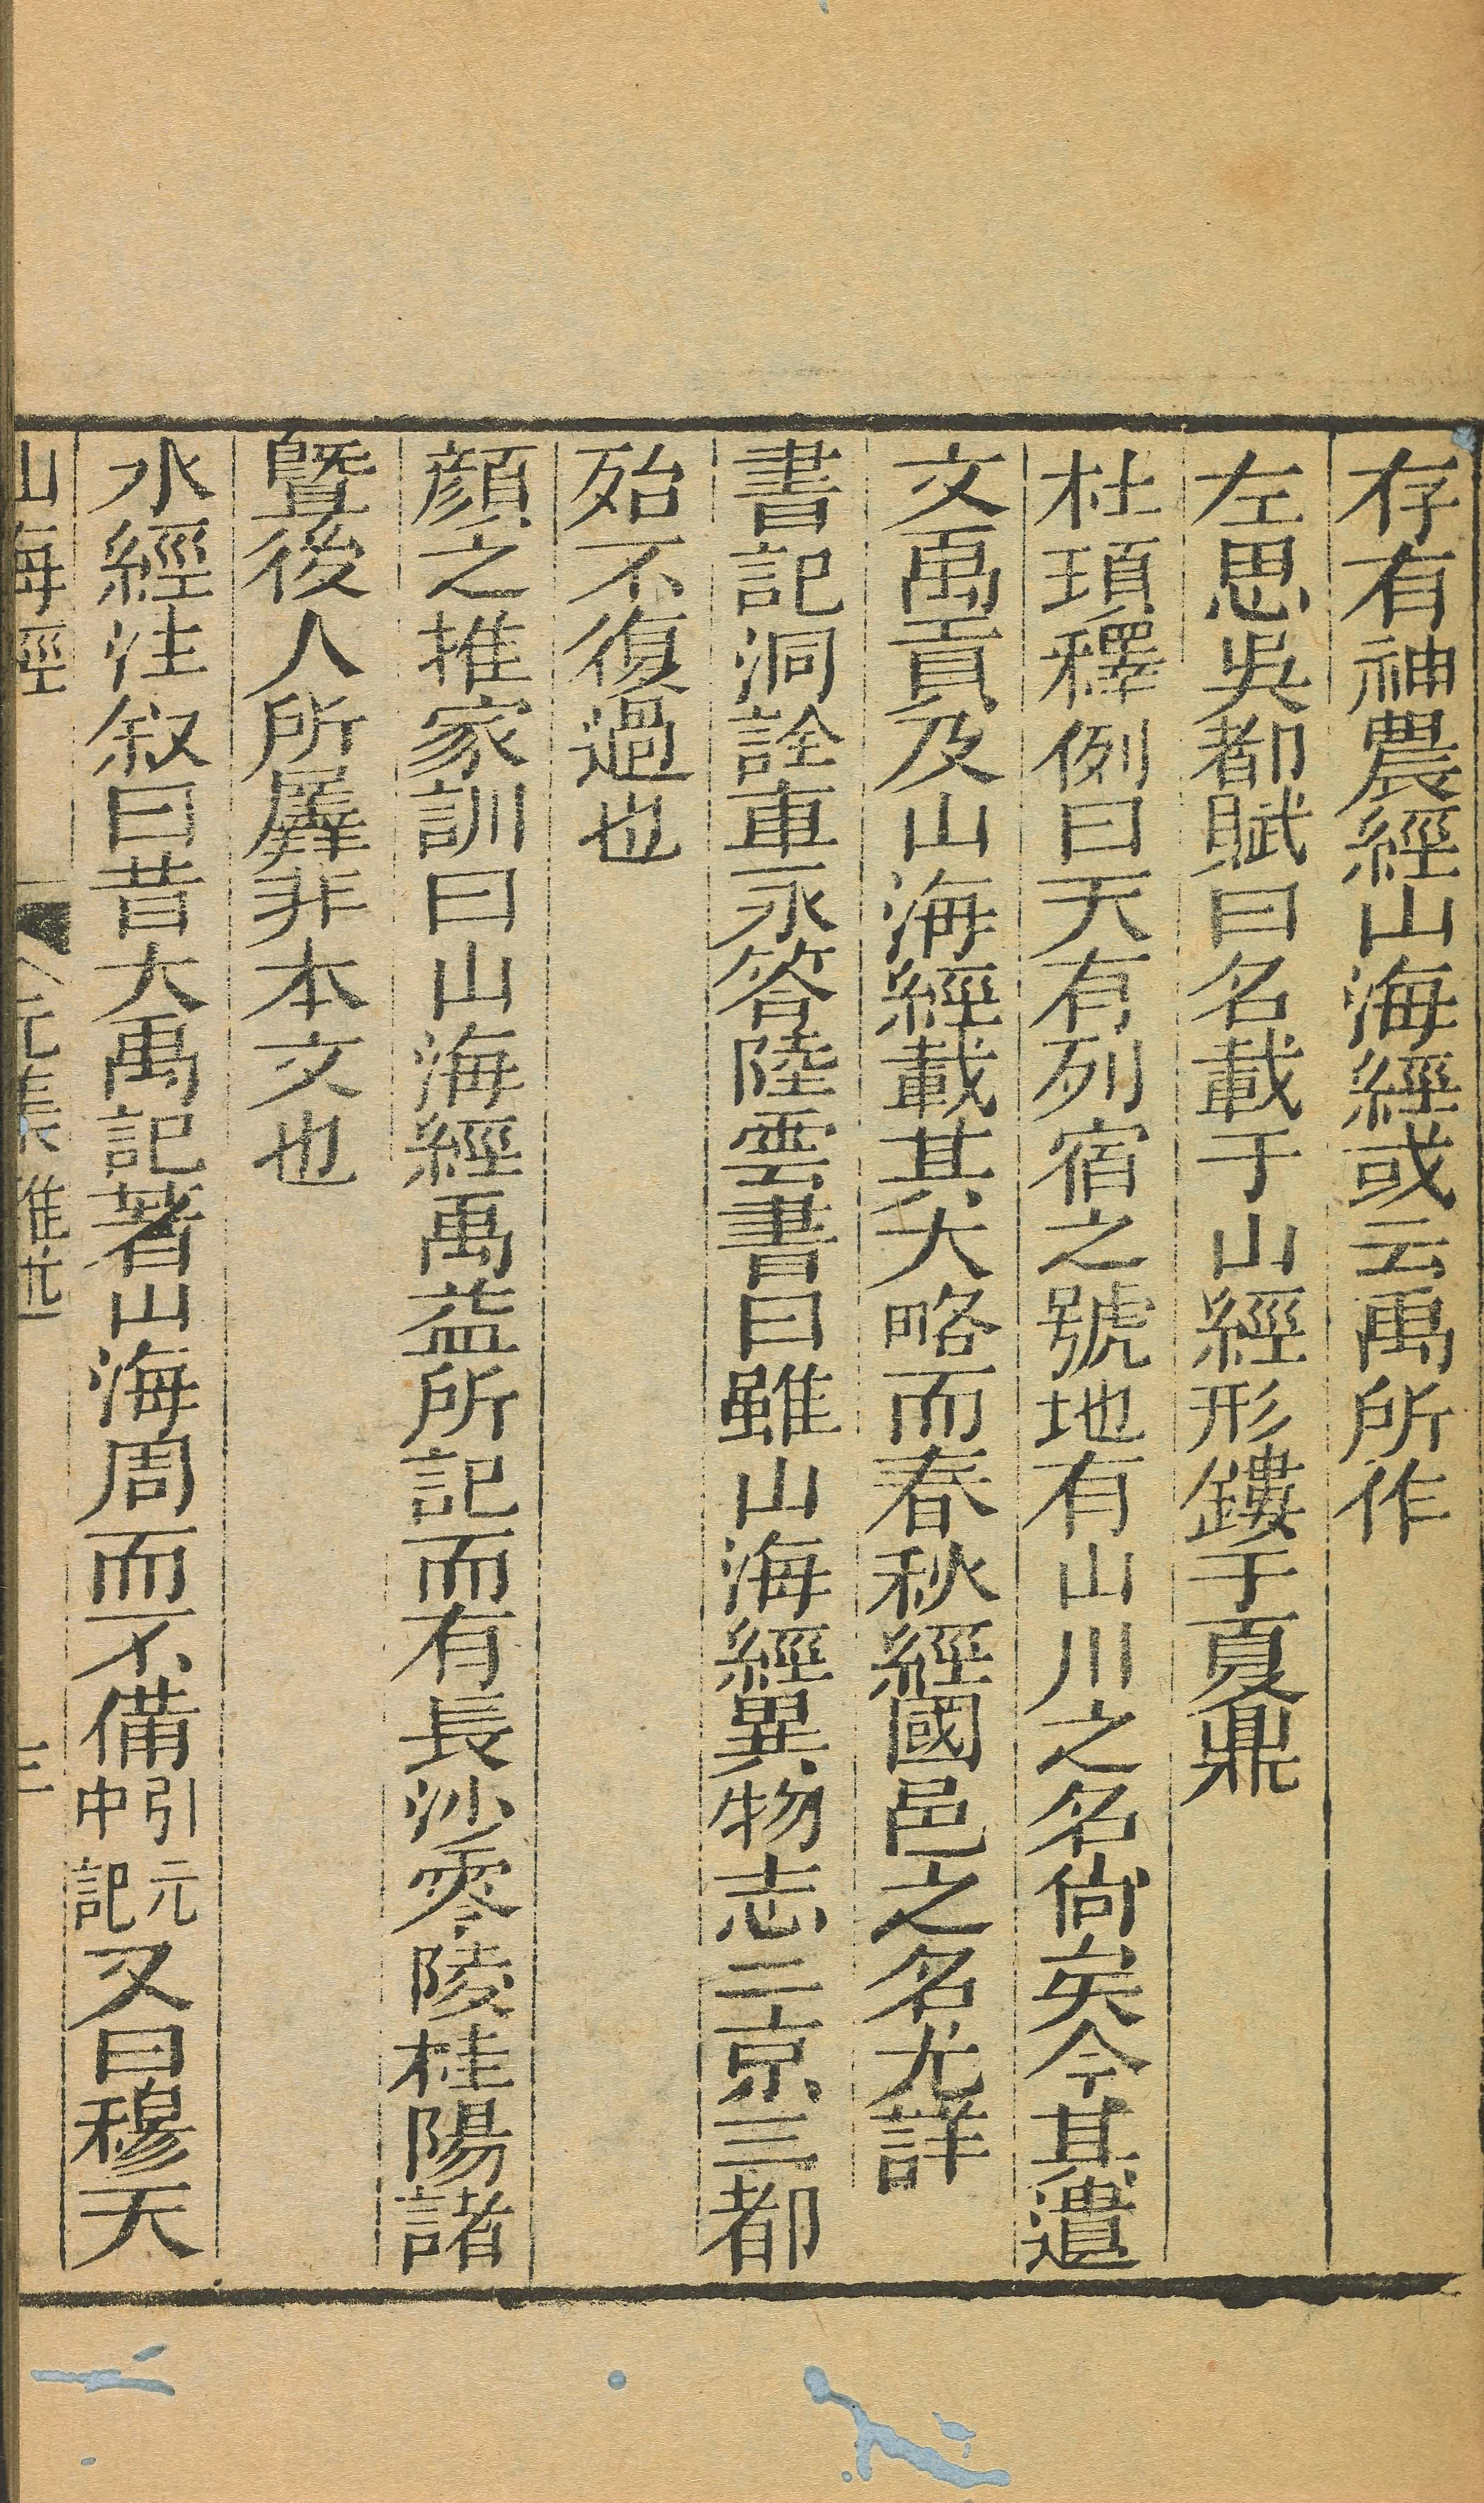 存有神農經山海經或云禹所作
左思吳都賦曰名載于山經形鏤于夏鼎
杜頊釋例曰天有列宿之號地有山川之名尙矣今其遺
文禹貢及山海經載其大略而春秋經國邑之名尤詳
書記洞詮車永答陸雲書曰雖山海經異物志二京三都
殆不復過也
顔之推家訓曰山海經禹益所記而有長沙零陵桂陽諸
曁後人所羼非本文也
水經注叙曰昔大禹記著山海周而不備引元中記又曰穆天
山海經 雜述 三